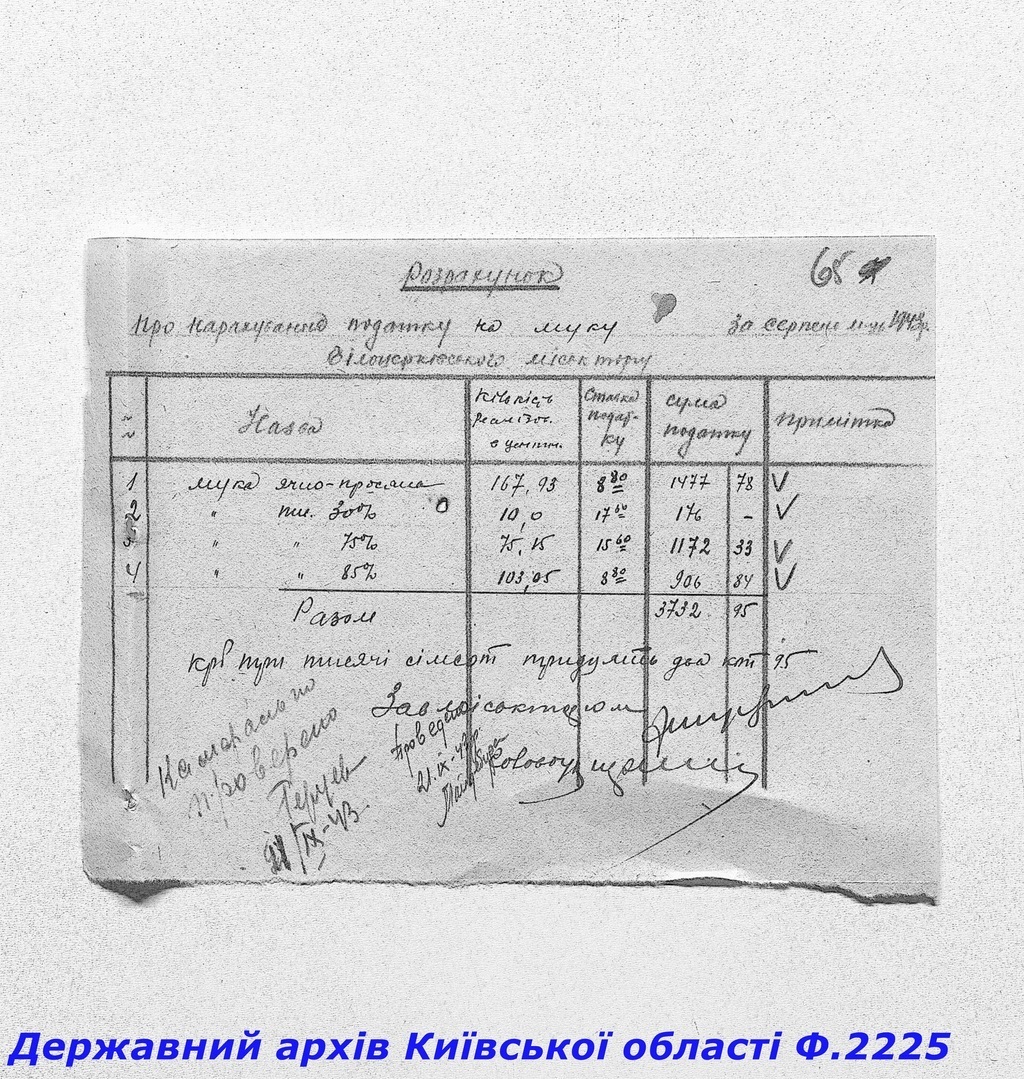 68
Розрахунок
Про нарахування податку на муку за серпень м-ць 1943р.
Білоцерківського міськторгу
Назва Кількість реалізов. в центн. Ставка податку сума податку примітка
1 мука ячно-просяна 167,93 8 80 1477 78 ✓
2 " пш. 30% 10,0 17 60 176 - ✓
3 " " 75% 75,15 15 60 1172 33 ✓
4 " " 85% 103,05 8 80 906 84 ✓
Разом 3732 95
крб три тисячі сімсот тридцять два коп 95
Зав міськторгом
Камерально
проверено
21/IX-43
Проведено
21.IX-43р.
Державний архів Київської області Ф.2225